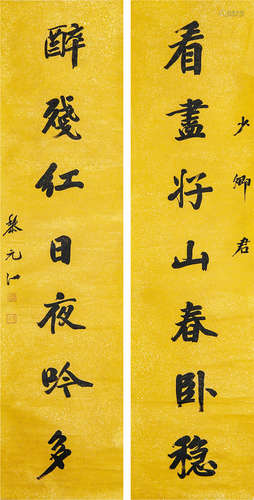 看盡好山春臥穩
少卿君
醉殘紅日夜吟多
蔡元